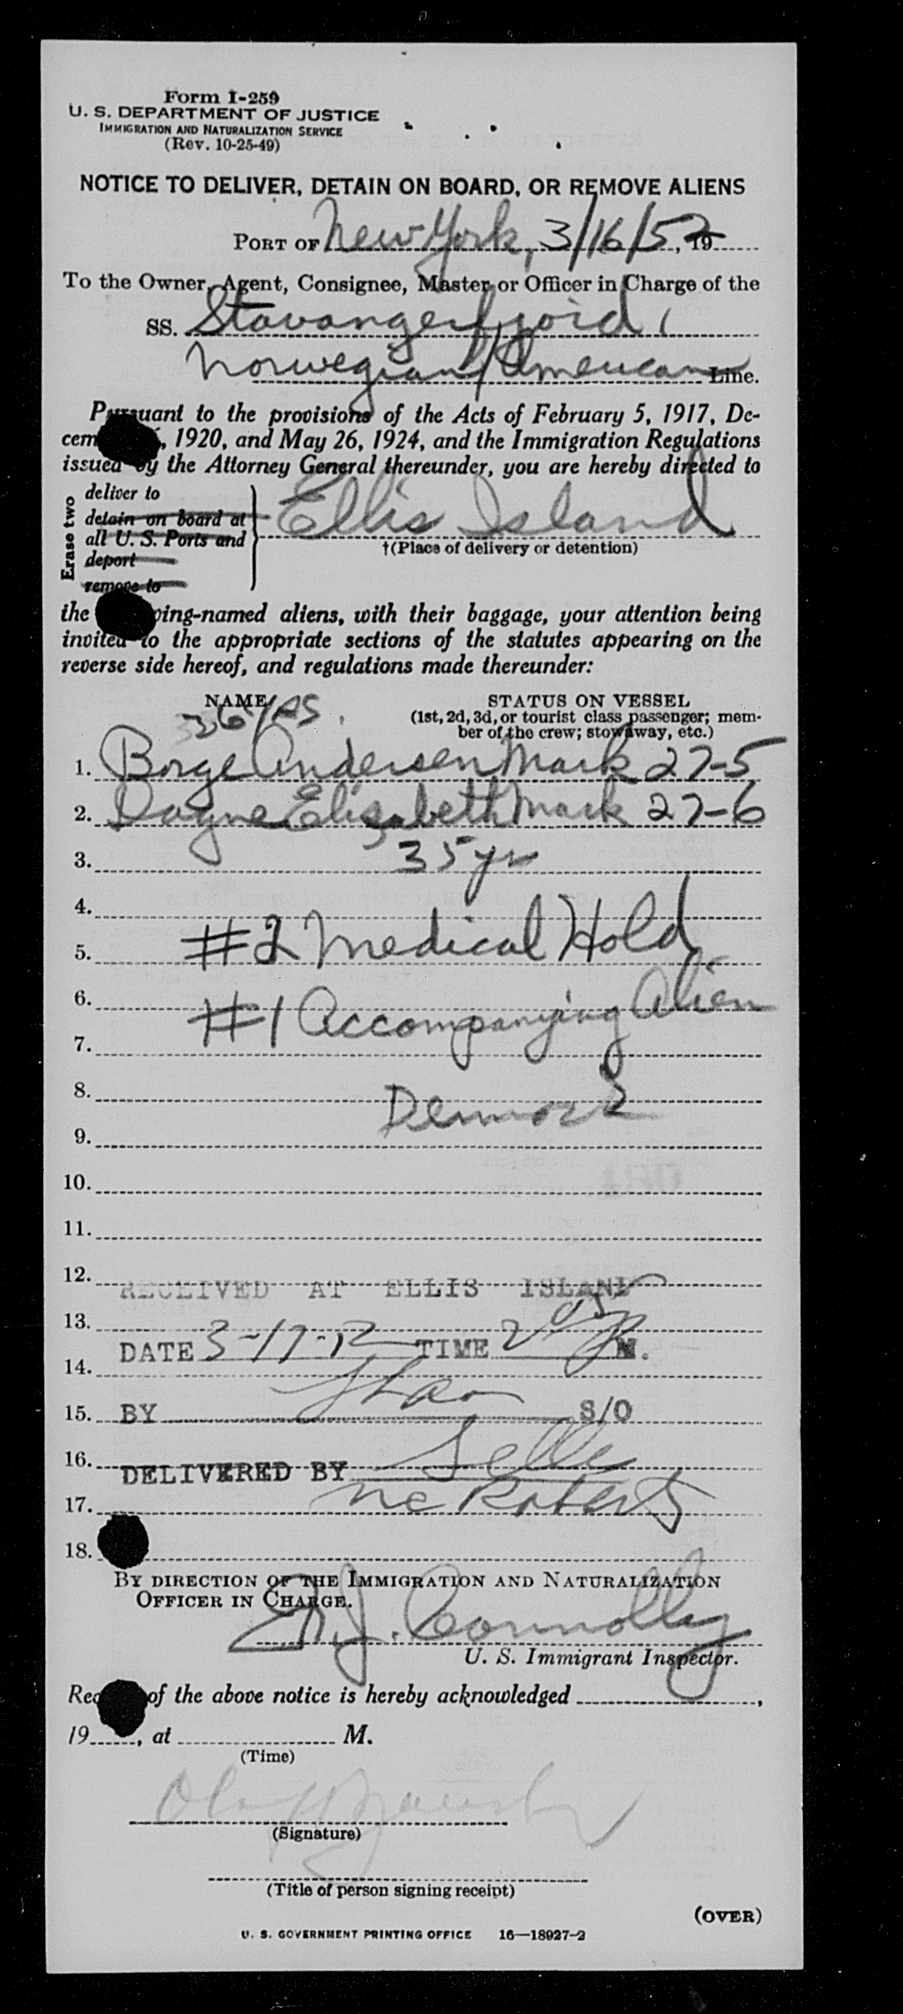 Form I-259
U. S. DEPARTMENT OF JUSTICE
IMMIGRATION AND NATURALIZATION SERVICE
(Rev. 10-25-49)
NOTICE TO DELIVER, DETAIN ON BOARD, OR REMOVE ALIENS
PORT OF New York, 3/16/52, 19
To the Owner, Agent, Consignee, Master or Officer in Charge of the
SS. Stavangerfjord,
Norwegian/American Line.
Pursuant to the provisions of the Acts of February 5, 1917, De-
cem , 1920, and May 26, 1924, and the Immigration Regulations
issued by the Attorney General thereunder, you are hereby directed to
Erase two
deliver to
detain on board at
all U. S. Ports and
deport
remove to
Ellis Island
†(Place of delivery or detention)
the ing-named aliens, with their baggage, your attention being
invited to the appropriate sections of the statutes appearing on the
reverse side hereof, and regulations made thereunder:
NAME STATUS ON VESSEL
(1st, 2d, 3d, or tourist class passenger; mem-
ber of the crew; stowaway, etc.)
1. Borge Andersen Mark 27-5
2. Dagne Elisabeth Mark 27-6
3. 35 yr
4.
5. #2 Medical Hold
6. #1 Accompanying Alien
7.
8. Denmark
9.
10.
11.
12. RECEIVED AT ELLIS ISLAND
13.
DATE 3-17-52 TIME 2 05 P M.
14.
15. BY S/O
16. DELIVERED BY
17. Mc Roberts
18.
BY DIRECTION OF THE IMMIGRATION AND NATURALIZATION
OFFICER IN CHARGE.
J. Connolly
U. S. Immigrant Inspector.
Rec of the above notice is hereby acknowledged ,
19 , at M.
(Time)
(Signature)
(Title of person signing receipt)
(OVER)
U. S. GOVERNMENT PRINTING OFFICE 16—18927-2